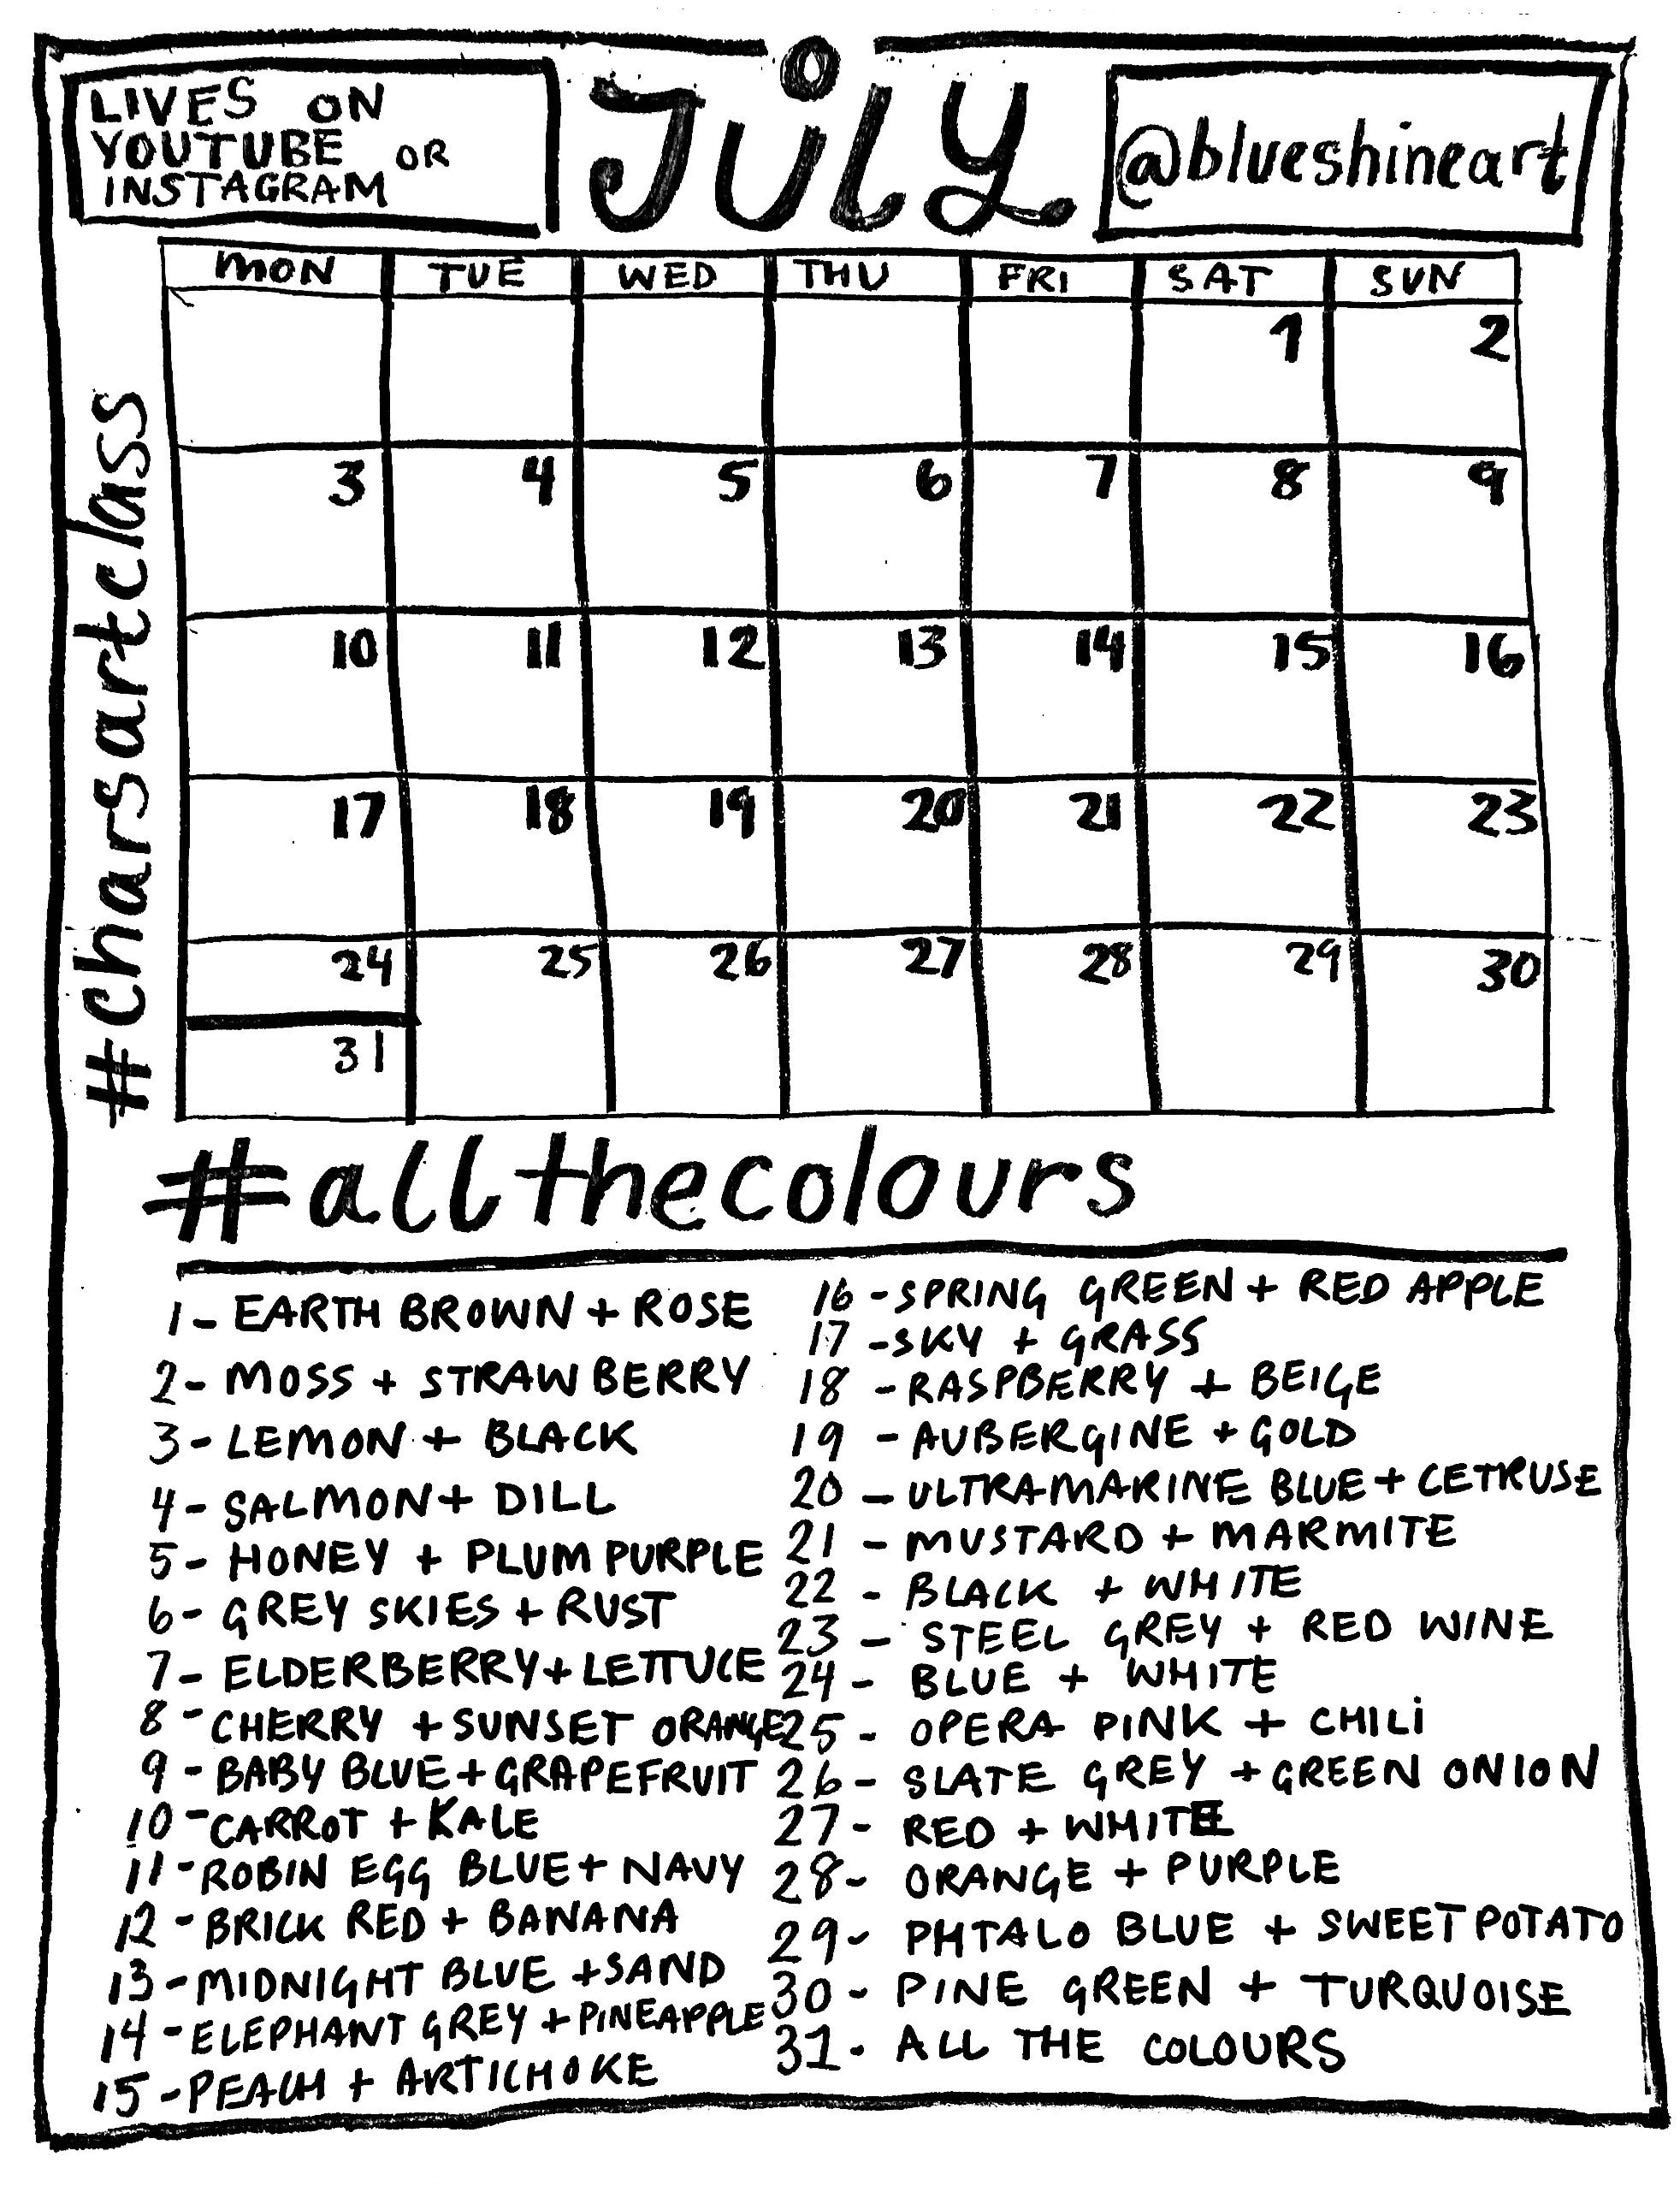 LIVES ON
YOUTUBE OR
INSTAGRAM
JULY
@blueshineart
MON TUE WED THU FRI SAT SUN
1 2
3 4 5 6 7 8 9
10 11 12 13 14 15 16
17 18 19 20 21 22 23
24 25 26 27 28 29 30
31
#charsartclass
#allthecolours
1- EARTH BROWN + ROSE
2- MOSS + STRAWBERRY
3- LEMON + BLACK
4- SALMON + DILL
5- HONEY + PLUM PURPLE
6- GREY SKIES + RUST
7- ELDERBERRY + LETTUCE
8- CHERRY + SUNSET ORANGE
9- BABY BLUE + GRAPEFRUIT
10- CARROT + KALE
11- ROBIN EGG BLUE + NAVY
12- BRICK RED + BANANA
13- MIDNIGHT BLUE + SAND
14- ELEPHANT GREY + PINEAPPLE
15- PEACH + ARTICHOKE
16- SPRING GREEN + RED APPLE
17- SKY + GRASS
18- RASPBERRY + BEIGE
19- AUBERGINE + GOLD
20- ULTRAMARINE BLUE + CETRUSE
21- MUSTARD + MARMITE
22- BLACK + WHITE
23- STEEL GREY + RED WINE
24- BLUE + WHITE
25- OPERA PINK + CHILI
26- SLATE GREY + GREEN ONION
27- RED + WHITE
28- ORANGE + PURPLE
29- PHTALO BLUE + SWEET POTATO
30- PINE GREEN + TURQUOISE
31- ALL THE COLOURS